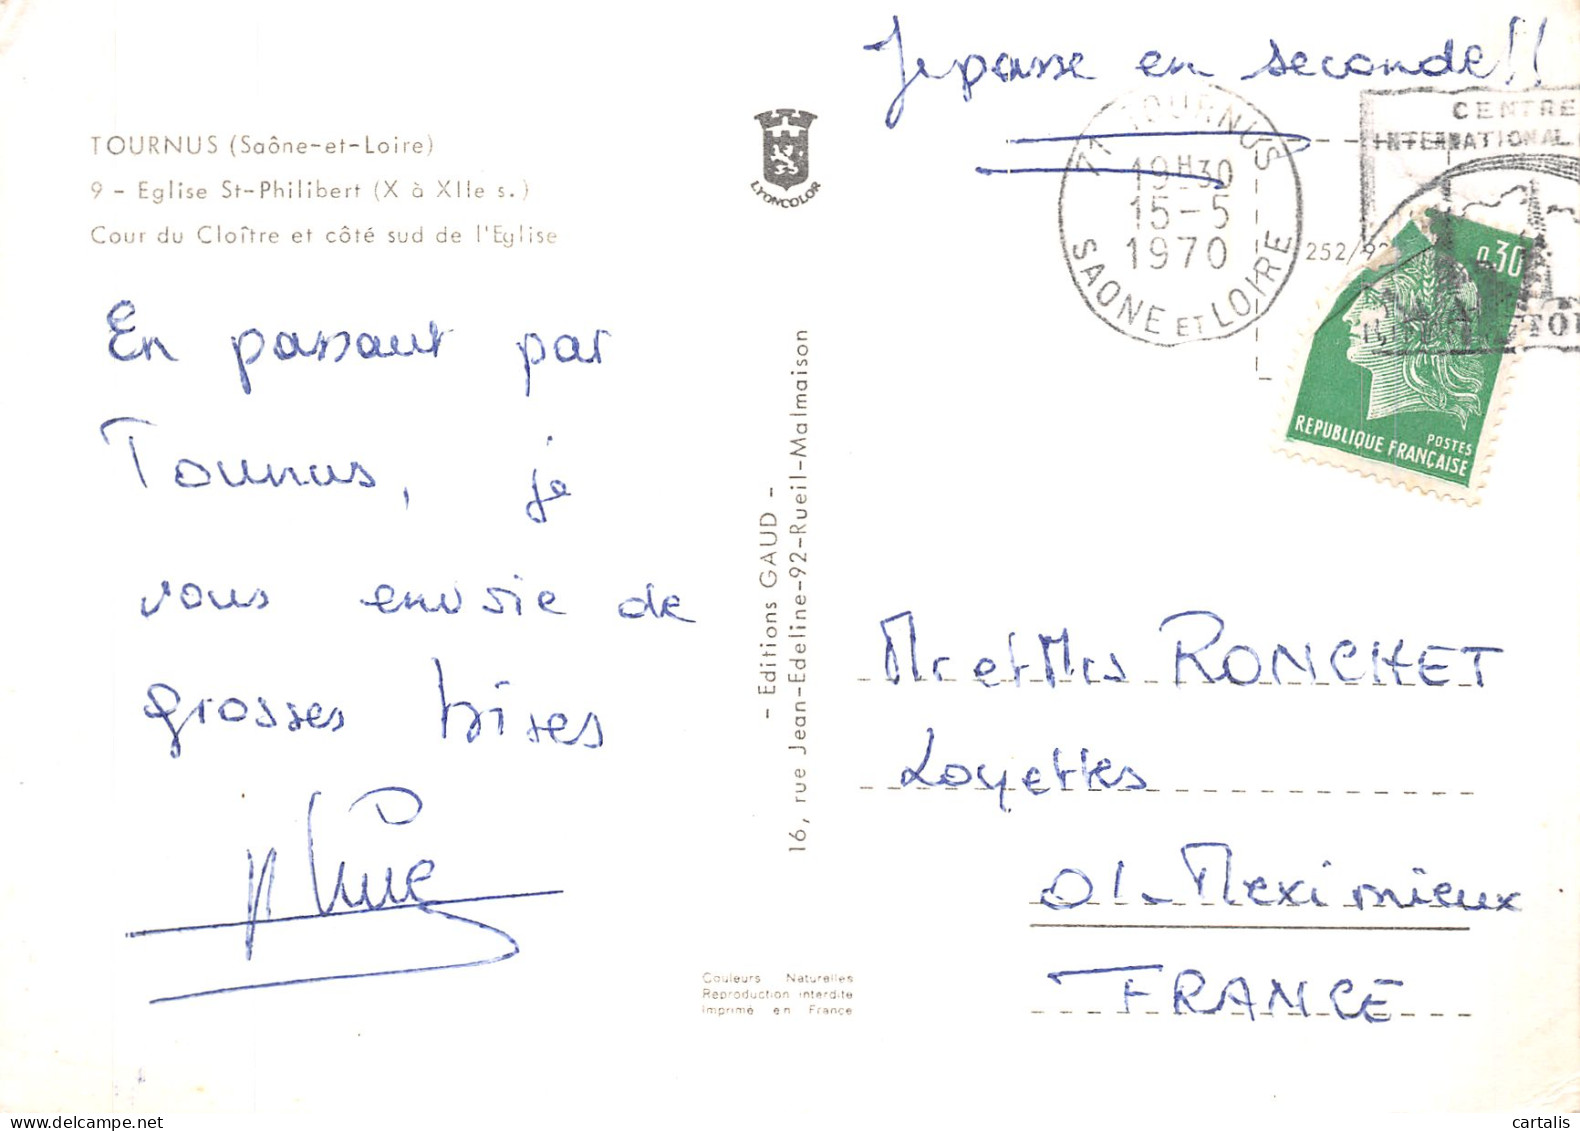 Je passe en seconde!!
TOURNUS (Saône-et-Loire)
9 - Eglise St-Philibert (X à XIIe s.)
Cour du Cloître et côté sud de l'Eglise
LYONCOLOR
71 TOURNUS
19H30
15-5
1970
SAONE ET LOIRE
CENTRE
INTERNATIONAL
252/92
0,30
POSTES
REPUBLIQUE FRANÇAISE
En passant par
Tournus, je
vous envoie de
grosses bises
- Editions GAUD -
16, rue Jean-Edeline-92-Rueil-Malmaison
Mr et Mrs RONCHET
Loyettes
01-Meximieux
FRANCE
Couleurs Naturelles
Reproduction interdite
Imprimé en France
cartalis